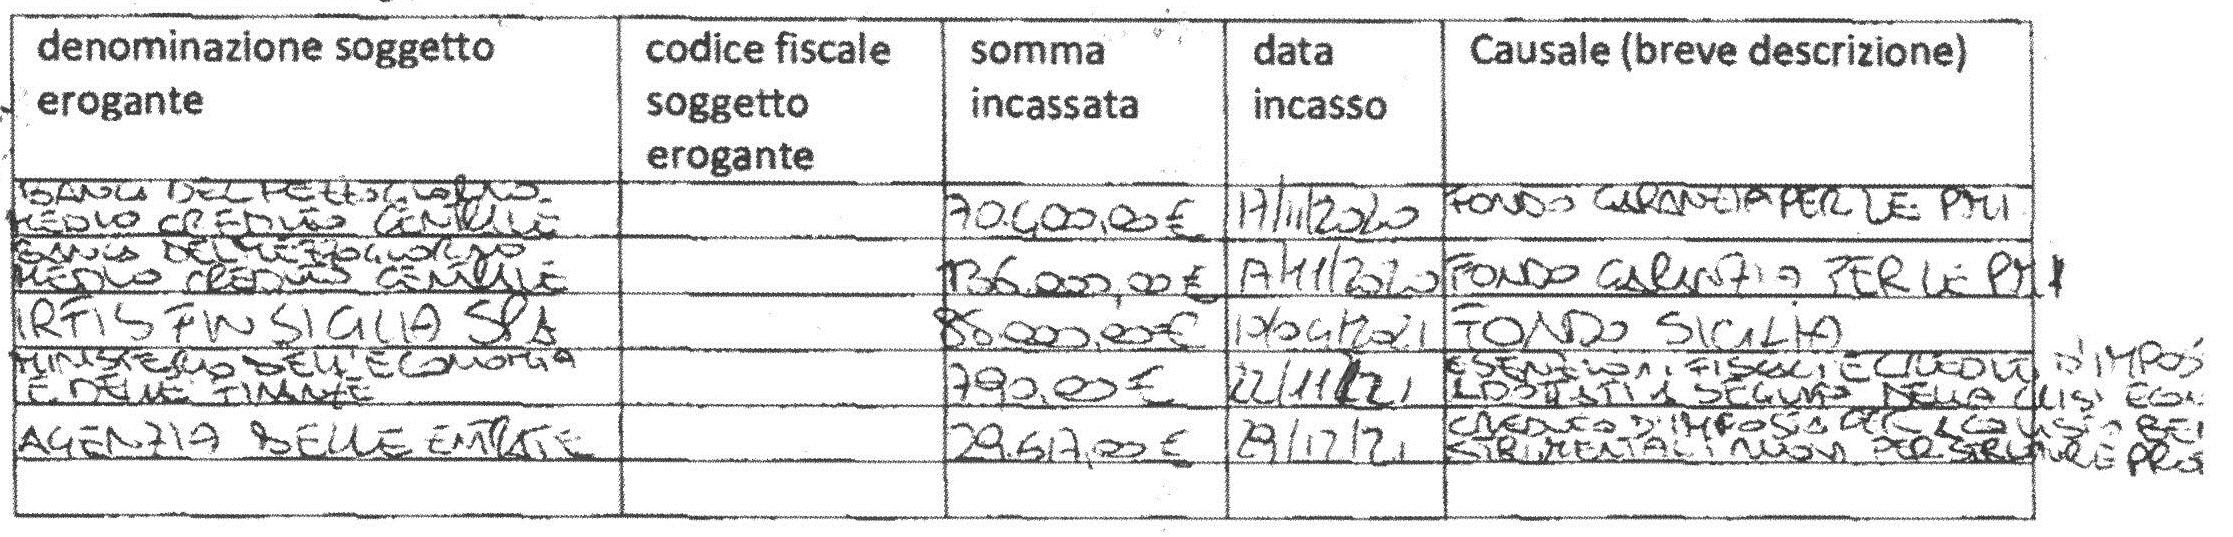 denominazione soggetto erogante
codice fiscale soggetto erogante
somma incassata
data incasso
Causale (breve descrizione)
BANCA DEL MEZZOGIORNO
MEDIO CREDITO CENTRALE
70.400,00 €
17/11/2020
FONDO GARANZIA PER LE PMI
BANCA DEL MEZZOGIORNO
MEDIO CREDITO CENTRALE
136.000,00 €
17/11/2020
FONDO GARANZIA PER LE PMI
IRFIS FINSICILIA SPA
86.000,00 €
FONDO SICILIA
MINISTERO DELL'ECONOMIA
E DELLE FINANZE
790,00 €
22/11/21
ESENZIONI FISCALI E CREDITI D'IMPOS
ADOTTATI A SEGUITO DELLA CRISI ECON
AGENZIA DELLE ENTRATE
29.617,00 €
29/12/21
CREDITO D'IMPOSTA PER ACQUISTO BENI
STRUMENTALI NUOVI PER STRUTTURE PRO